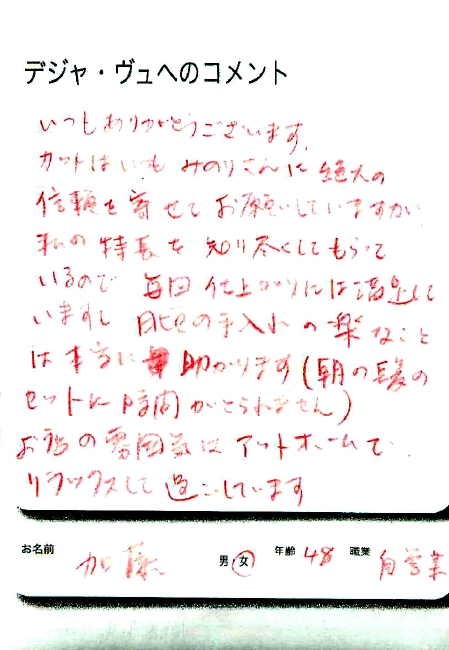 デジャ・ヴュへのコメント
いつもありがとうございます。
カットはいつもみのりさんに絶大の
信頼を寄せてお願いしていますが、
私の特長を知り尽くしてもらって
いるので毎回仕上がりには満足して
いますし自宅の手入れの楽なこと
は本当に助かります(朝の髪の
セットに時間がとられません)
お店の雰囲気はアットホームで
リラックスして過ごしています
お名前 加藤 男 女 年齢 48 職業 自営業